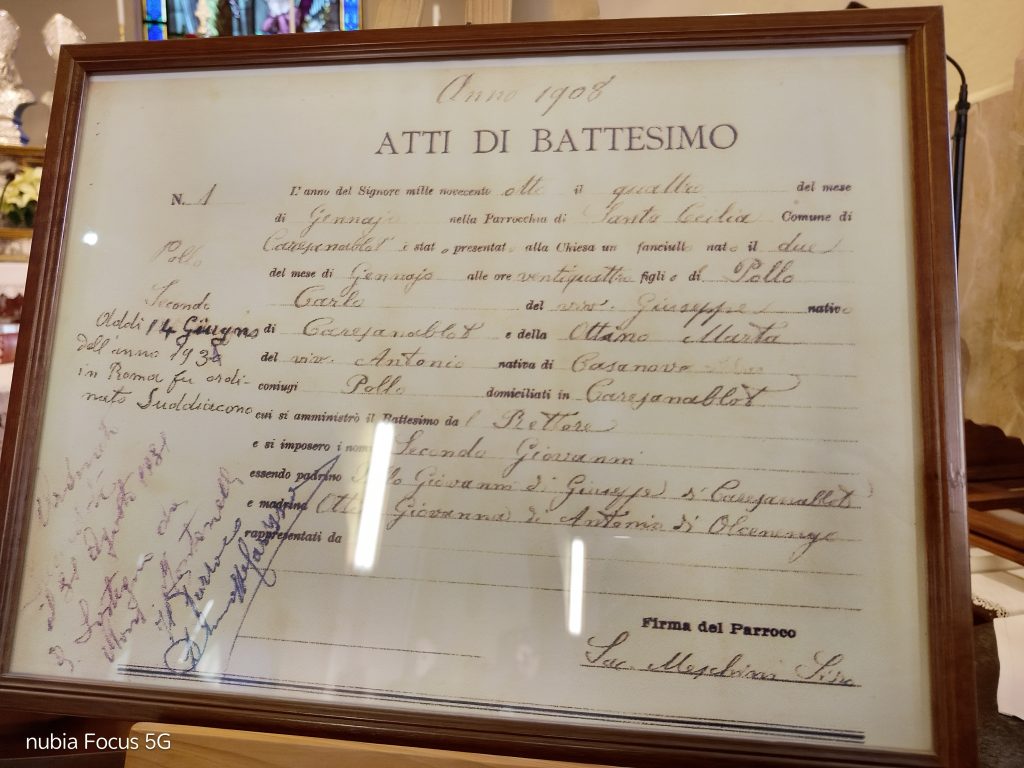 Anno 1908
ATTI DI BATTESIMO
N. 1
L'anno del Signore mille novecento otto il quattro del mese
di Gennajo nella Parrocchia di Santa Cecilia Comune di
Caresanablot è stato presentato alla Chiesa un fanciullo nato il due
del mese di Gennajo alle ore ventiquattro figlio di Pollo
Carlo del viv. Giuseppe nativo
di Caresanablot e della Ottino Marta
del viv. Antonio nativa di Casanova
coniugi Pollo domiciliati in Caresanablot
cui si amministrò il Battesimo dal Rettore
e si imposero i nomi Secondo Giovanni
essendo padrino Giovanni di Giuseppe di Caresanablot
e madrina Giovanna di Antonio di Olcenengo
rappresentati da
Firma del Parroco
Sac. Meschini Siro
Pollo
Secondo
Addì 14 Giugno
dell'anno 193
in Roma fu ordi-
nato Suddiacono
nubia Focus 5G